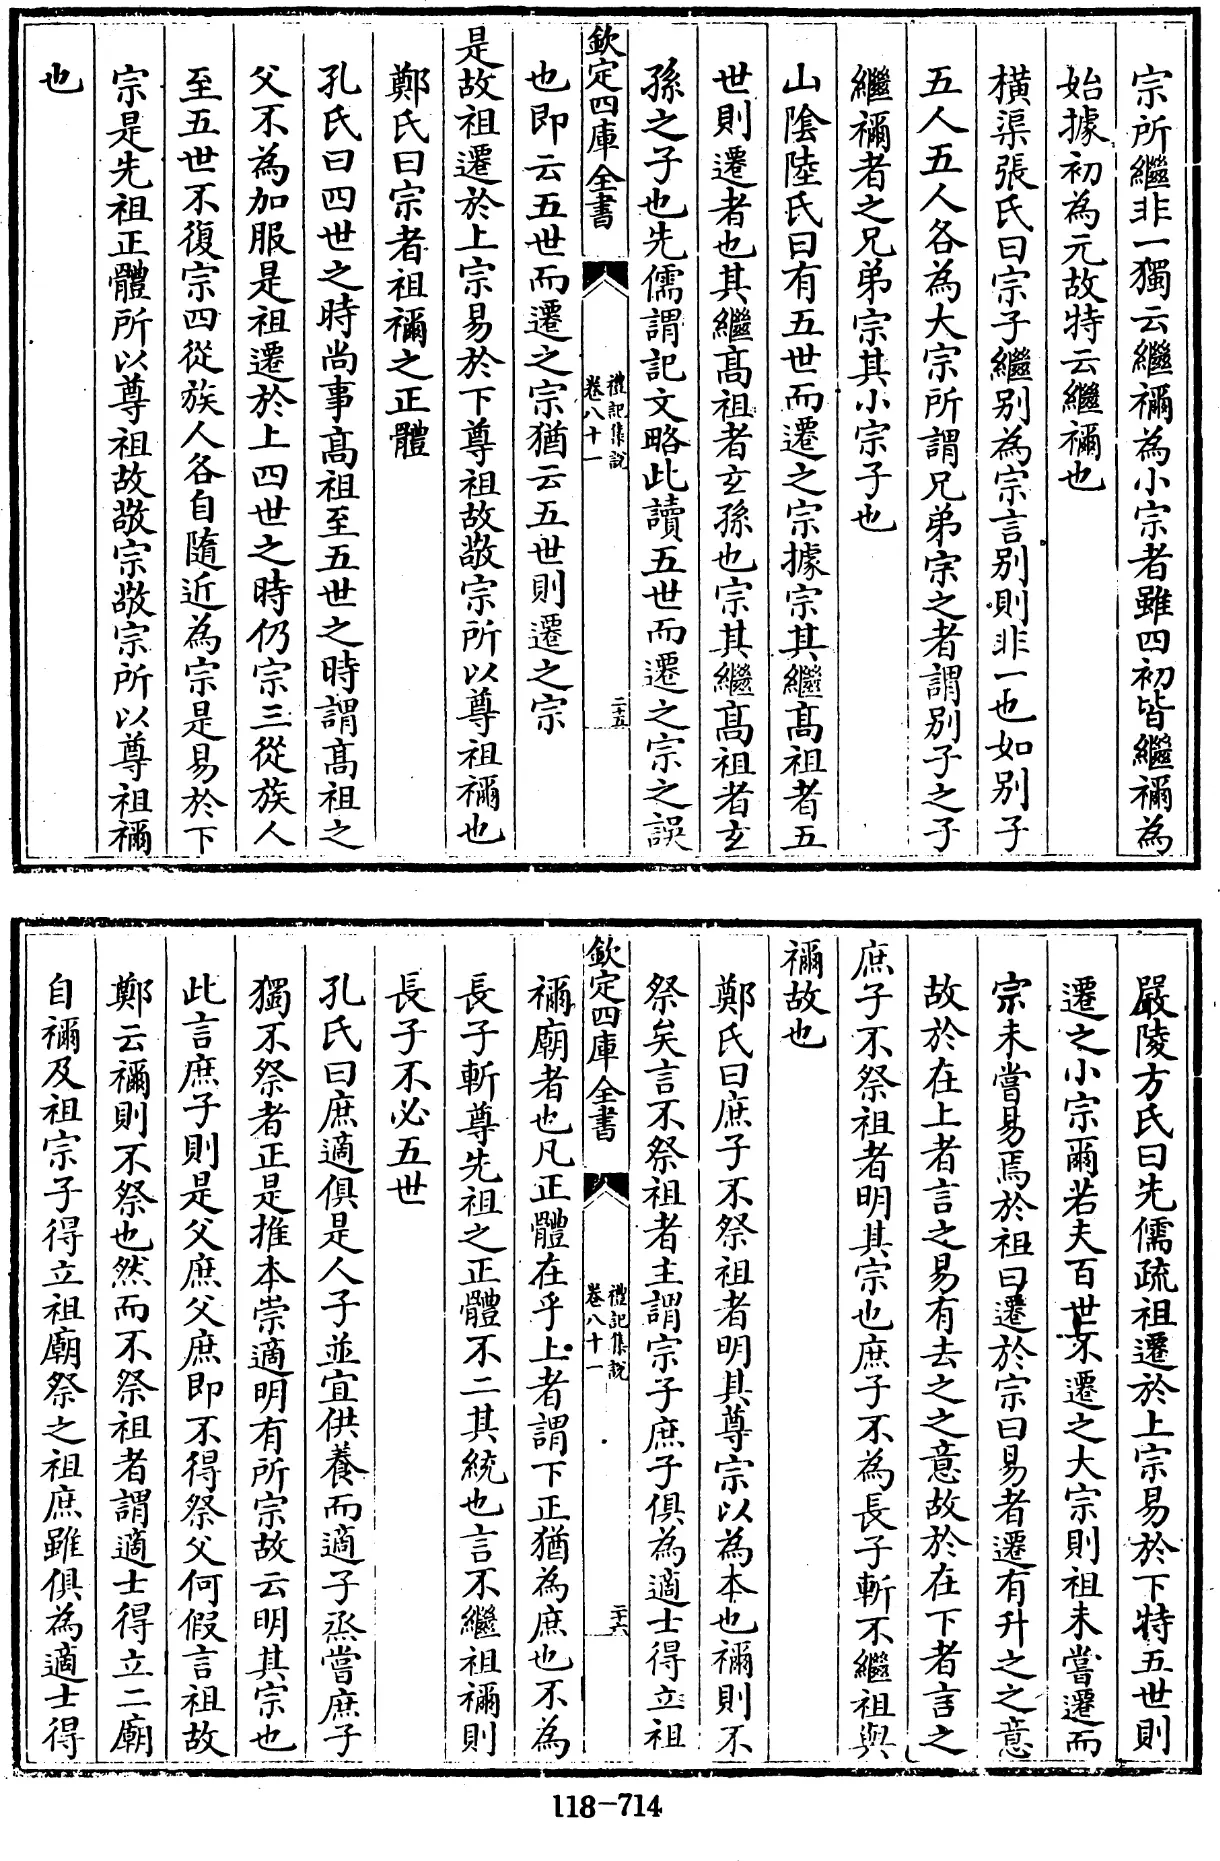 宗所繼非一獨云繼禰為小宗者雖四初皆繼禰為
始據初為元故特云繼禰也
橫渠張氏曰宗子繼别為宗言别則非一也如别子
五人五人各為大宗所謂兄弟宗之者謂别子之子
繼禰者之兄弟宗其小宗子也
山隂陸氏曰有五世而遷之宗據宗其繼髙祖者五
世則遷者也其繼髙祖者玄孫也宗其繼髙祖者玄
孫之子也先儒謂記文略此讀五世而遷之宗之誤
欽定四庫全書
禮記集說
卷八十一
二十五
也即云五世而遷之宗猶云五世則遷之宗
是故祖遷於上宗易於下尊祖故敬宗敬宗所以尊祖禰也
鄭氏曰宗者祖禰之正體
孔氏曰四世之時尚事髙祖至五世之時謂髙祖之
父不為加服是祖遷於上四世之時仍宗三從族人
至五世不復宗四從族人各自隨近為宗是易於下
宗是先祖正體所以尊祖故敬宗敬宗所以尊祖禰
也
嚴陵方氏曰先儒疏祖遷於上宗易於下特五世則
遷之小宗爾若夫百世不遷之大宗則祖未嘗遷而
宗未嘗易焉於祖曰遷於宗曰易者遷有升之之意
故於在上者言之易有去之之意故於在下者言之
庶子不祭祖者明其宗也庶子不為長子斬不繼祖與
禰故也
鄭氏曰庶子不祭祖者明其尊宗以為本也禰則不
祭矣言不祭祖者主謂宗子庶子俱為適士得立祖
欽定四庫全書
禮記集說
卷八十一
二十六
禰廟者也凡正體在乎上者謂下正猶為庶也不為
長子斬尊先祖之正體不二其統也言不繼祖禰則
長子不必五世
孔氏曰庶適俱是人子並宜供養而適子烝嘗庶子
獨不祭者正是推本崇適明有所宗故云明其宗也
此言庶子則是父庶父庶即不得祭父何假言祖故
鄭云禰則不祭也然而不祭祖者謂適士得立二廟
自禰及祖宗子得立祖廟祭之祖庶雖俱為適士得
118-714